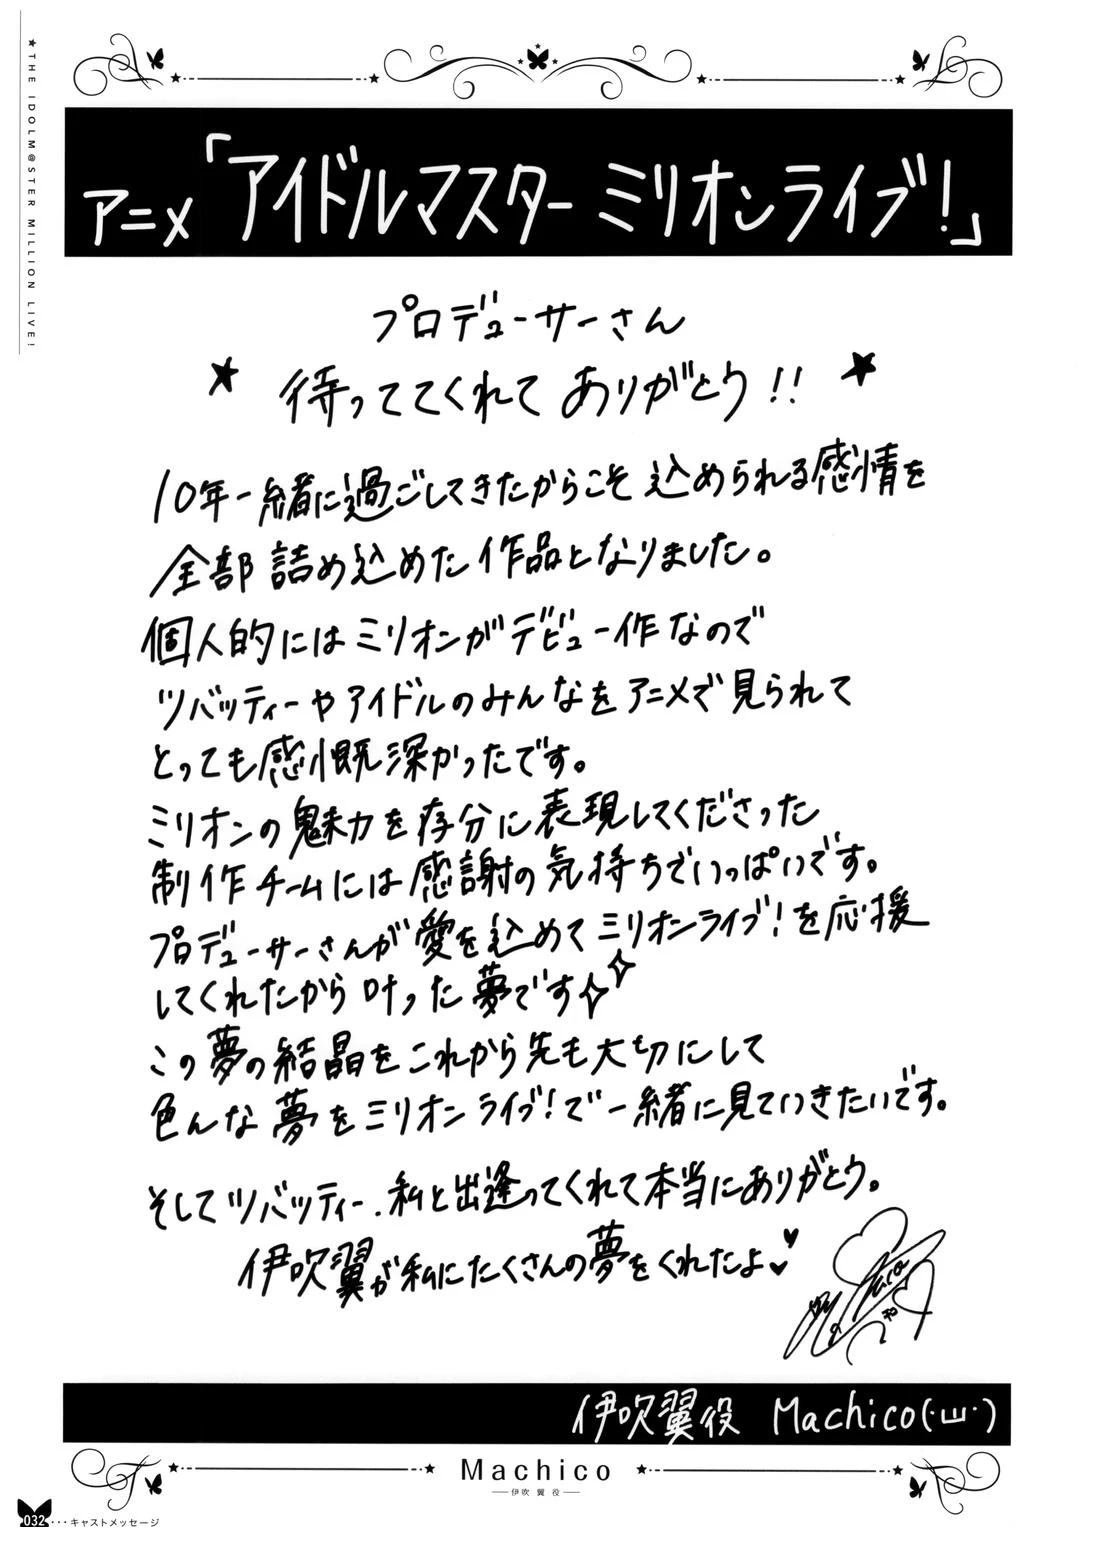 ★THE IDOLM@STER MILLION LIVE!
アニメ「アイドルマスター ミリオンライブ!」
プロデューサーさん
★ 待っててくれて ありがとう!! ★
10年一緒に過ごしてきたからこそ 込められる感情を
全部 詰め込めた 作品となりました。
個人的にはミリオンがデビュー作なので
ツバッティーやアイドルのみんなをアニメで見られて
とっても感慨深かったです。
ミリオンの魅力を存分に表現してくださった
制作チームには感謝の気持ちでいっぱいです。
プロデューサーさんが愛を込めてミリオンライブ!を応援
してくれたから叶った夢です✧✧
この夢の結晶をこれから先も大切にして
色んな夢をミリオンライブ!で一緒に見ていきたいです。
そしてツバッティー.私と出逢ってくれて本当にありがとう。
伊吹翼が私にたくさんの夢をくれたよ♥♥
伊吹翼役 Machico(・ω・)
Machico
伊吹 翼 役
032・・・キャストメッセージ